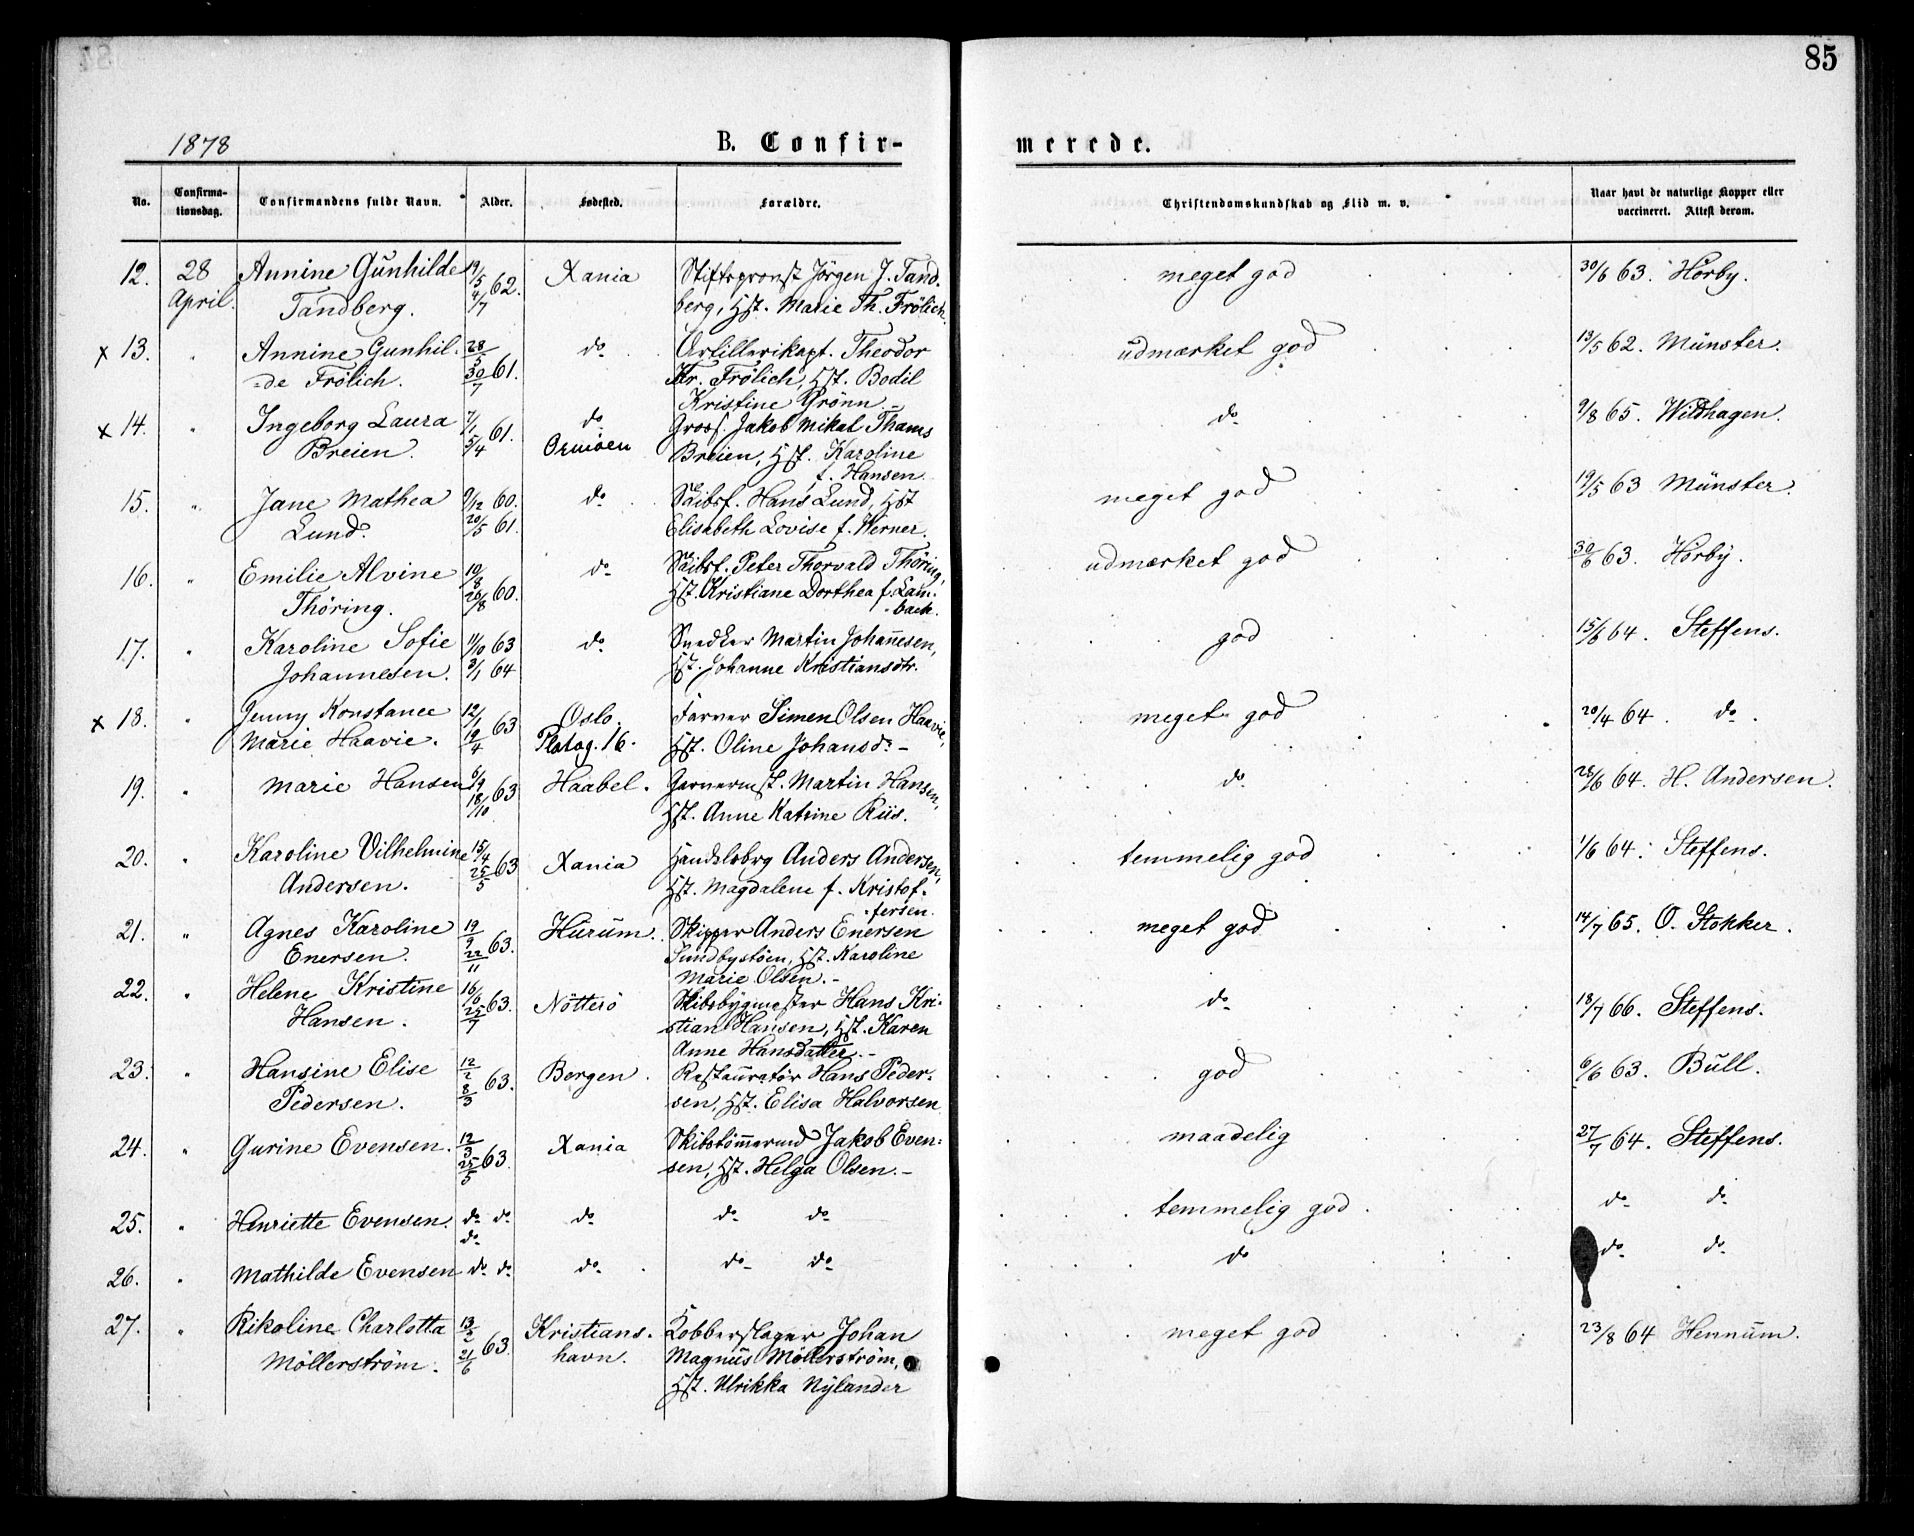 85
1878
B. Confir-
merede.
No.
Confirma-
tionsdag.
Confirmandens fulde Navn.
Alder.
Fødested.
Forældre.
Christendomskundskab og Flid m. v.
Naar havt de naturlige Kopper eller
vaccineret. Attest derom.
12. 28 Annine Gunhilde 19/5 62. Xania Stiftsprovst Jörgen J. Tand- meget god 30/6 63. Hörby.
April. Tandberg. 4/7 berg, Hst. Marie Th. Frölich.
x 13. " Annine Gunhil- 28/5 61. do Artillerikapt. Theodor udmærket god 13/5 62. Münster.
-de Frölich. 30/7 Fr. Frölich, Hst. Bodil
Kristine Grönn.-
x 14. " Ingeborg Laura 7/1 61. do Gross. Jakob Mikal Thams do 9/8 65. Witthagen.
Breien. 5/4 Ormöen Breien, Hst. Karoline
f. Hansen
15. " Jane Mathea 9/12 60. do Skibsf. Hans Lund, Hst meget god 19/5 63 Münster.
Lund. 20/5 61. Elisabeth Lovise f. Werner.
16. " Emilie Alvine 10/8 60. do Skibsf. Peter Thorvald Thöring, udmærket god 30/6 63. Hörby.
Thöring. 26/8 Hst. Kristiane Dorthea f. Lam-
-bach.
17. " Karoline Sofie 11/10 63 do Snedker Martin Johannesen, god 15/6 64. Steffens.
Johannesen. 3/1 64 Hst. Johanne Kristiansdtr.
x 18. " Jenny Konstance 12/1 63 Oslo. Farver Simen Olsen Haavie, meget god 20/4 64. do.
Marie Haavie. 19/4 Platog. 16. Hst. Oline Johansdr-
19. " Marie Hansen 6/9 63 Haabel. Garvermst. Martin Hansen, do 28/6 64. H. Andersen.
18/10 Hst. Anne Katrine Riis.
20. " Karoline Vilhelmine 15/4 63 Xania Handelsbrg Anders Andersen, temmelig god 1/6 64. Steffens.
Andersen. 25/5 Hst. Magdalene f. Kristof-
-fersen.
21. " Agnes Karoline 19/9 63. Hurum. Skipper Anders Enersen meget god 14/7 65. O. Stokker.
Enersen. 22/11 Sundbystöen, Hst. Karoline
Marie Olsen.-
22. " Helene Kristine 16/6 63. Nötterö Skibsbygmester Hans Kri- do 18/7 66. Steffens.
Hansen. 25/7 stian Hansen, Hst. Karen
Anne Hansdatter.-
23. " Hansine Elise 12/2 63. Bergen. Restauratör Hans Peder- god 6/6 63. Bull.
Pedersen. 8/3 sen, Hst. Elisa Halvorsen
24. " Gurine Evensen. 12/3 63. Xania Skibstömmermd Jakob Even- maadelig 27/7 64. Steffens.
25/5 sen, Hst. Helga Olsen.-
25. " Henriette Evensen. do do do do do temmelig god. do do
do
26. " Mathilde Evensen do do do. do do do do do
27. " Rikoline Charlotta 13/2 63. Kristians- Kobberslager Johan meget god 23/8 64 Hennum.
Möllerström. 21/6 havn. Magnus Möllerström,
Hst. Ulrikka Nylander